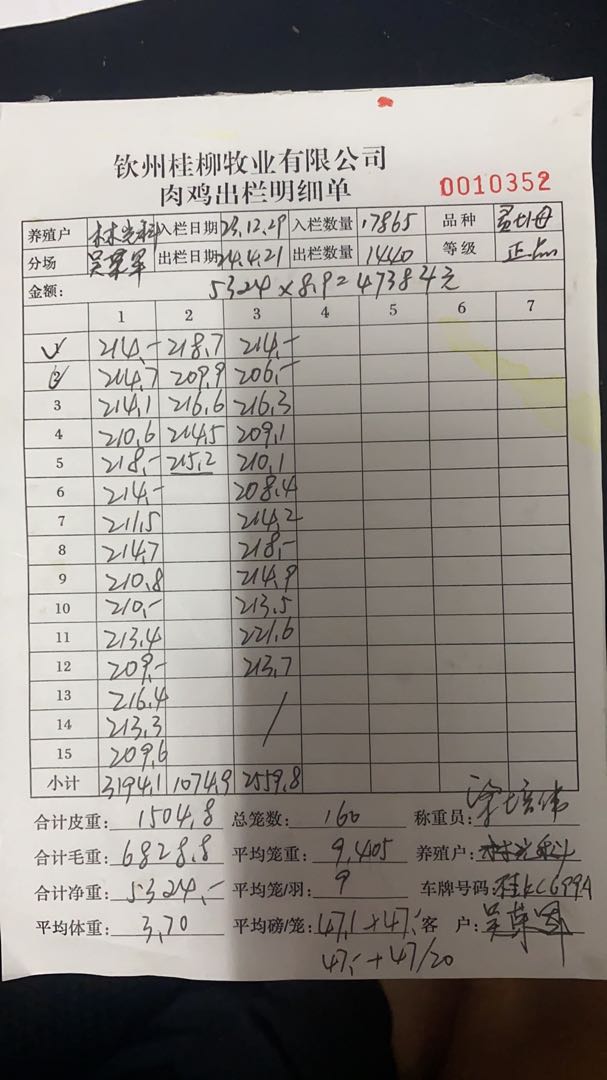 钦州桂柳牧业有限公司
肉鸡出栏明细单
0010352
养殖户 林光科 入栏日期 23.12.29 入栏数量 17865 品种
分场 吴荣军 出栏日期 24.4.21 出栏数量 1440 等级 正品
金额: 5324×8.9=47384元
1 2 3 4 5 6 7
1 214.- 218.7 214.-
2 214.7 209.9 206.-
3 214.1 216.6 216.3
4 210.6 214.5 209.1
5 218.- 215.2 210.1
6 214.- 208.4
7 211.5 214.2
8 214.7 218.-
9 210.8 214.9
10 210.- 213.5
11 213.4 221.6
12 209.- 213.7
13 216.4
14 213.3
15 209.6
小计 3194.1 1074.9 2559.8
合计皮重: 1504.8 总笼数: 160 称重员: 涂培伟
合计毛重: 6828.8 平均笼重: 9.405 养殖户: 林光科
合计净重: 5324.- 平均笼/羽: 9 车牌号码: 桂KC699A
平均体重: 3.70 平均磅/笼: 47.1+47.- 客 户: 吴荣军
47.-+47/20